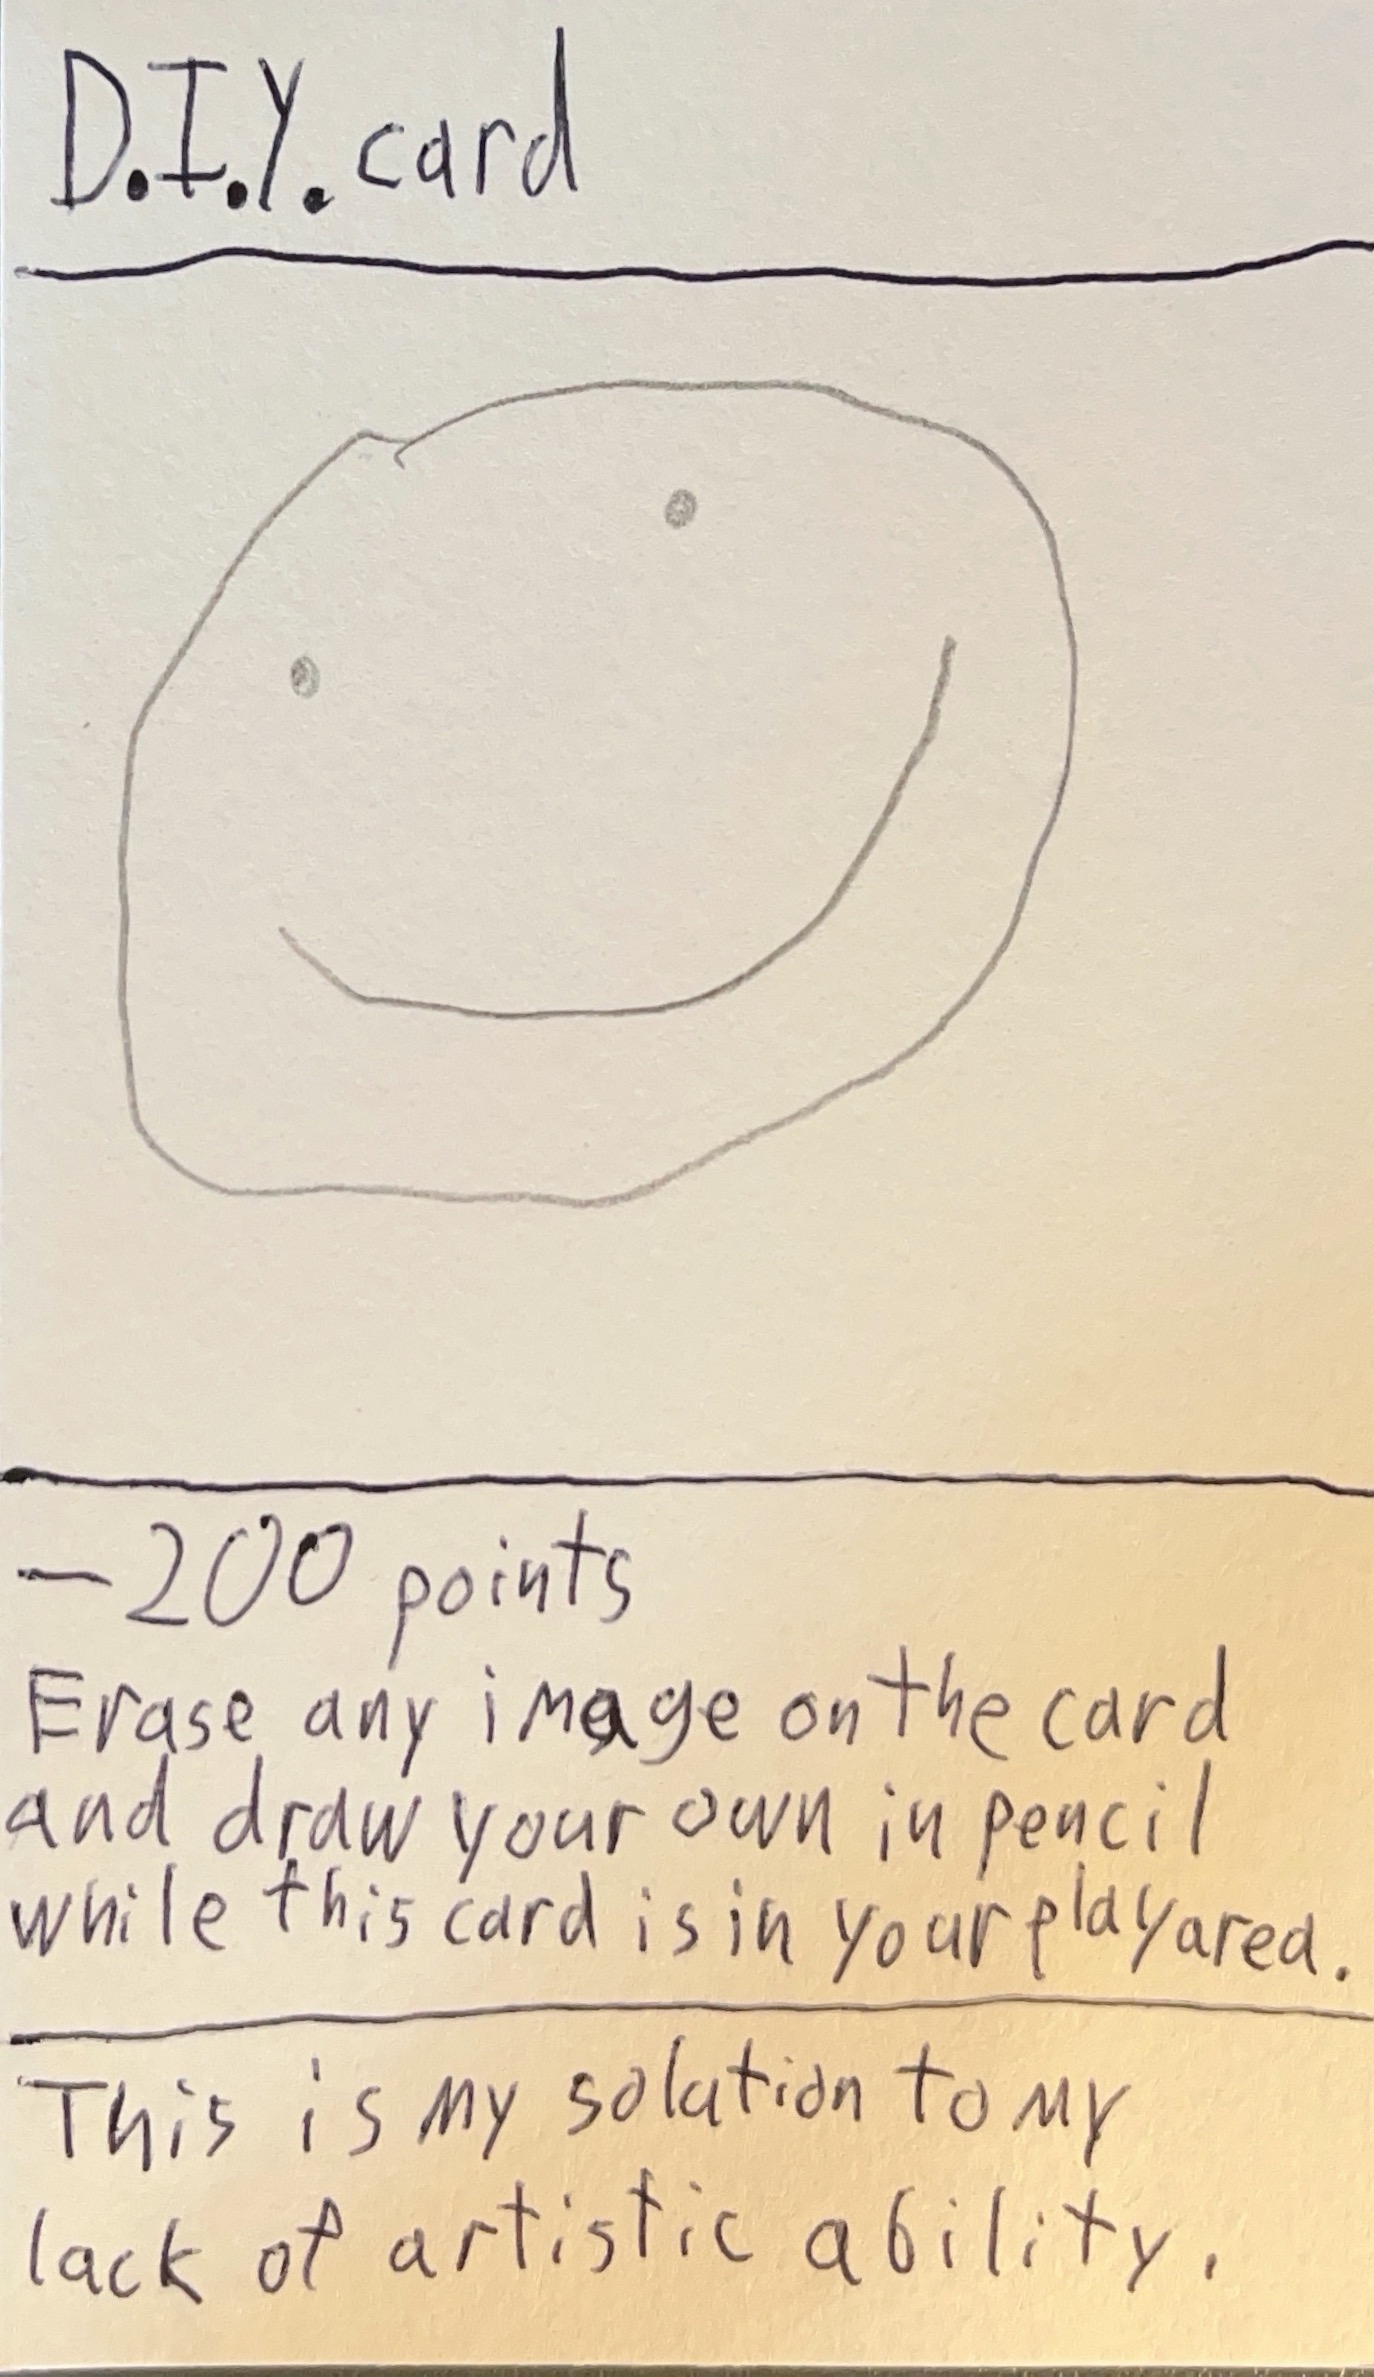 D.I.Y. card
-200 points
Erase any image on the card
and draw your own in pencil
while this card is in your playarea.
This is my solution to my
lack of artistic ability.